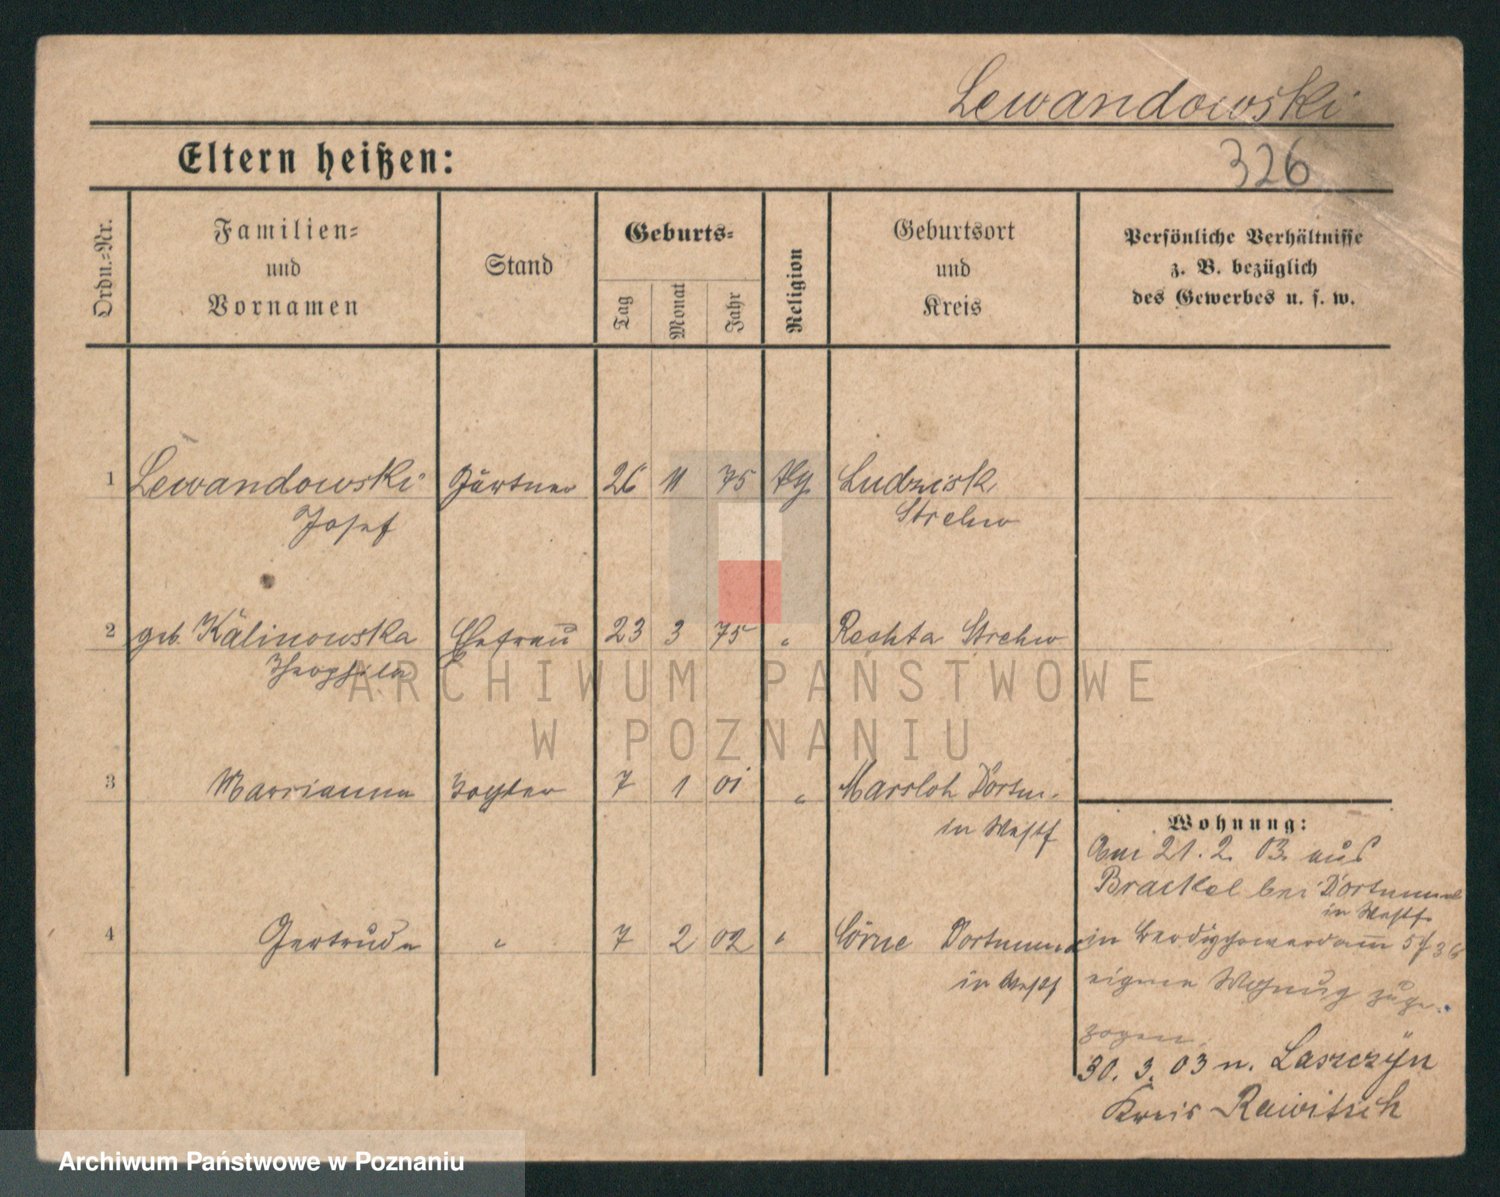 Lewandowski
326
Eltern heißen:
Ordn.-Nr.
Familien-
und
Vornamen
Stand
Geburts-
Tag
Monat
Jahr
Religion
Geburtsort
und
Kreis
Persönliche Verhältnisse
z. B. bezüglich
des Gewerbes u. s. w.
1 Lewandowski Gärtner 26 11 75 Ludzisk
Josef Strelno
2 geb. Kalinowska Ehefrau 23 3 75 " Rechta Strelno
Theophila
3 Marrianna Tochter 7 1 01 " Marsloh Dortm.
in Westf
4 Gertrude " 7 2 02 " Cörne Dortmund
in Westf
Wohnung:
Am 21. 2. 03. aus
Brackel bei Dortmund
in Westf.
in
eigene Wohnung zuge-
zogen.
30. 3. 03 n. Laszczyn
Kreis Rawitsch
ARCHIWUM PAŃSTWOWE
W POZNANIU
Archiwum Państwowe w Poznaniu